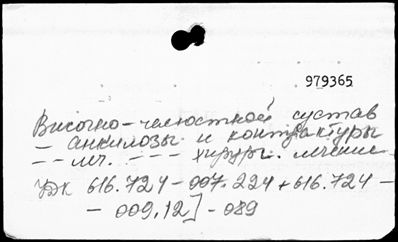 979365
Височно-челюстной сустав
- анкилозы и контрактуры
- - леч. - - - хирург. лечение
УДК 616.724-007.224+616.724-
- 009.12]-089